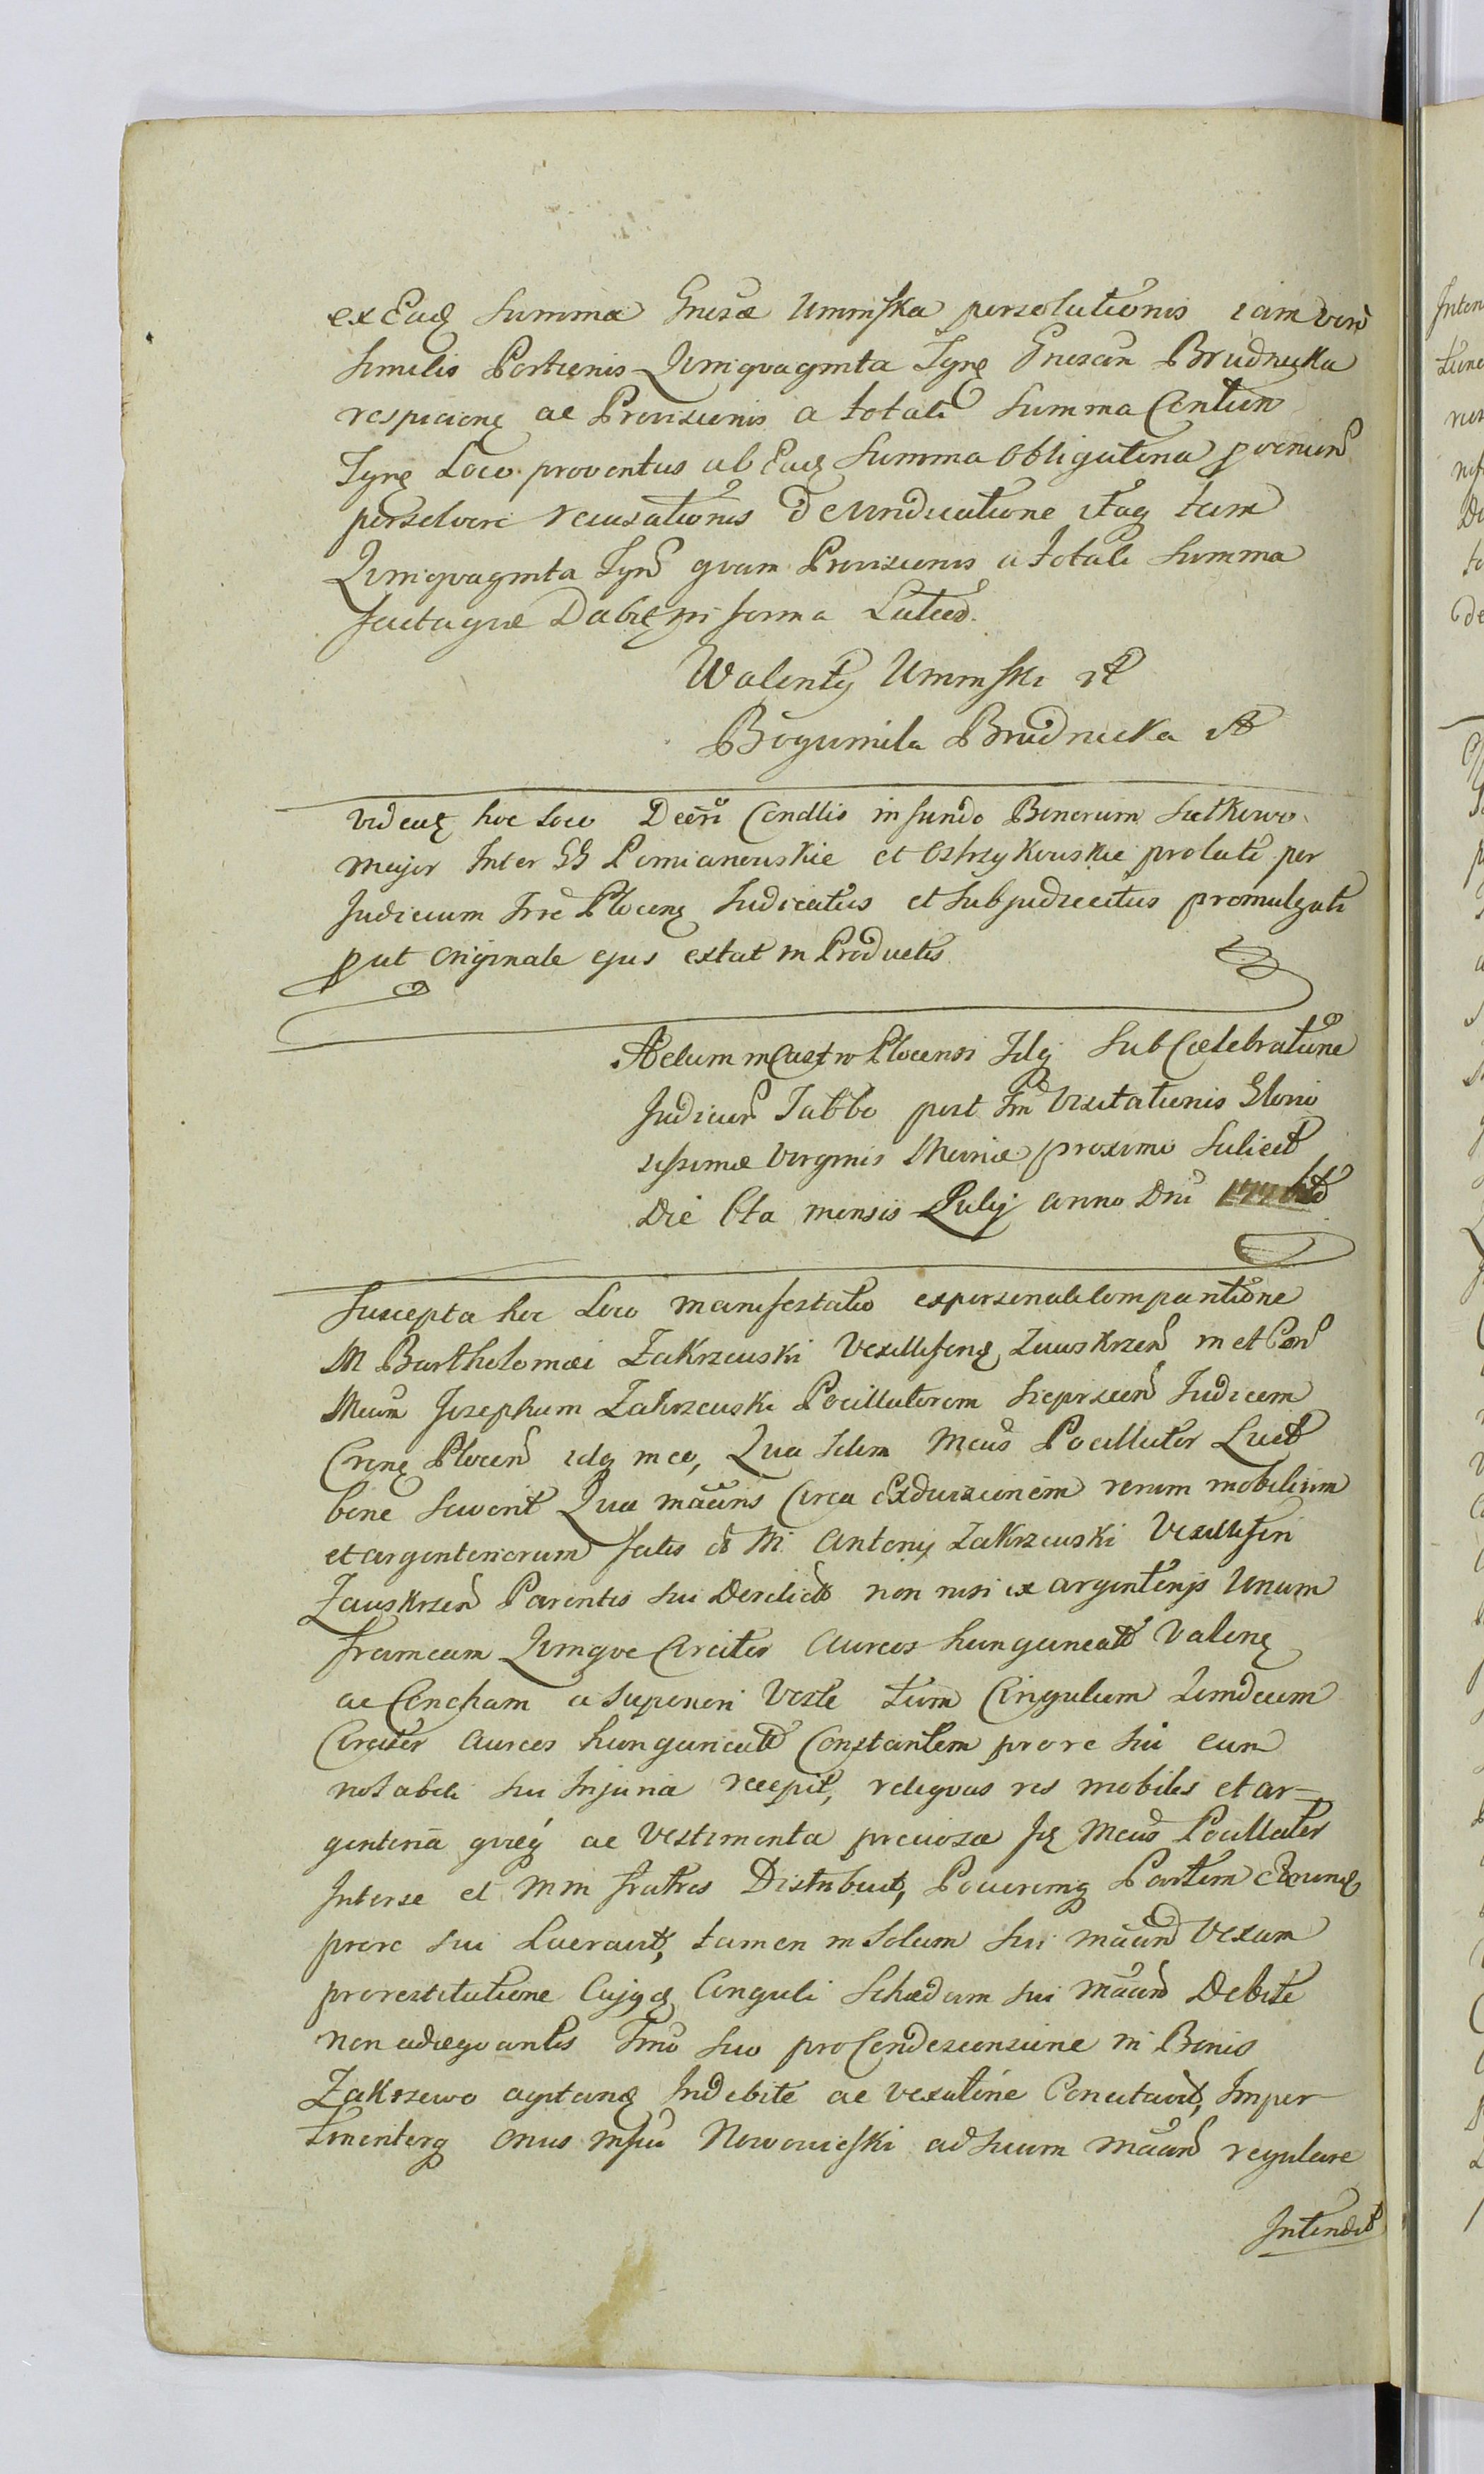 ex Eadę Summa Gnrosæ Uminska persolutionis iam vero
Similis Portionis Quinquaginta Tynę Gnrosam Brudnicka
respicienę ac Provisionis a totali Summa Centum
Tynę Loco proventus ab Eadę Summa Obligatoria pvenien
persolvere recusationis Devindicatione itaq tam
Quinquaginta Tyn quam Provisionis a totali Summa
factaque Dabię in forma Lateð.
Walenty Uminski
Bogumila Brudnicka
Videaę hoc loco Decri Condlis in fundo Bonorum Sutkowo
Major Inter GG Pomianowskie et Ostrzykowskie prolati per
Judicium Trrę Plocenę Judicatus et Subjudicatus promulgati
put Originale ejus extat in Productis
Actum in Castro Plocensi Fely Sub Cœlebratione
Judicior Sabbo post Fm Visitationis Glorio
sissimæ Virginis Mariæ proximo Scilicet
Die 6ta mensis July anno Dni
Suscepta hoc Loco manifestatio ex personali Compantione
M Bartholomæi Zakrzewski Vexilliferię Zawskrzen in et Con
Meum Josephum Zakrzewski Pocillatorem Sieprscen Judicem
Crenę Plocen idq in eo, Qua Idem Mcus Pocillator Luct
bene Siverit Qua mãnis Circa Exdivisionem rerum mobilium
et argenteriorum fatis M Antony Zakrzewski Vexilliferi
Zauskrzen Parentis sui Derelict non nisi ex argenterijs Unum
frameam Quinque Circiter Aureos hungaricat Valenę
ac Concham a Superiori Veste tum Cingulum Quindecim
Circiter Aureos hungaricat Constantem pro re sui cum
notabili sui Injuria recepit, reliquas res mobiles et ar-
genteria quæq ac Vestimenta preciosa Ję Mcus Pocillator
Inter se et Mm fratres Distribuit, Partem
pro re sui tamen in Solum sui mãn Vexam
pro restitutione Cujqę Cinguli Schedam sui mãn Debite
non adæquantis Fmo suo pro Condescensione in Bonis
Zakrzewo agitanę Indebite ac vexatõne Concitavit, Imper-
tinenterq onus Nowowieski ad Suum mãn regulare
Intendit